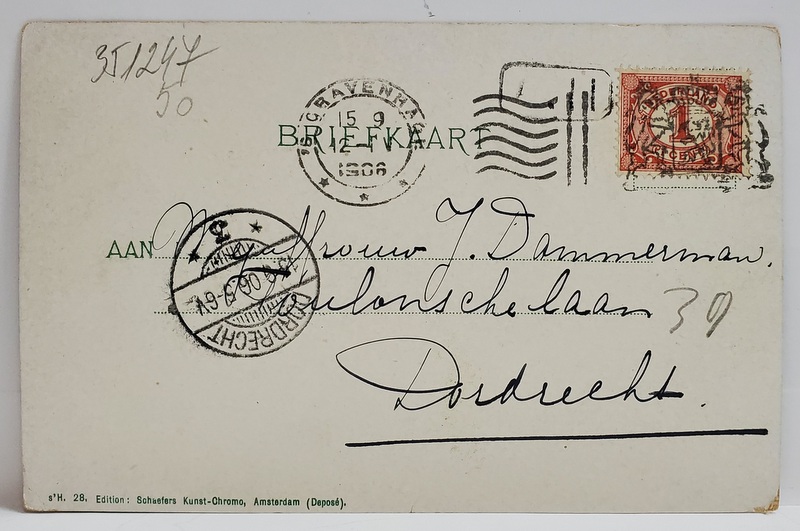 351247
50
'S GRAVENHAGE
15 9
12-1V
1906
BRIEFKAART
NEDERLAND
1
CENT
AAN Mejuffrouw J. Dammerman.
Dubbeldamschelaan 39
DORDRECHT
5
Dordrecht.
s'H. 28, Edition: Schaefers Kunst-Chromo, Amsterdam (Deposé).